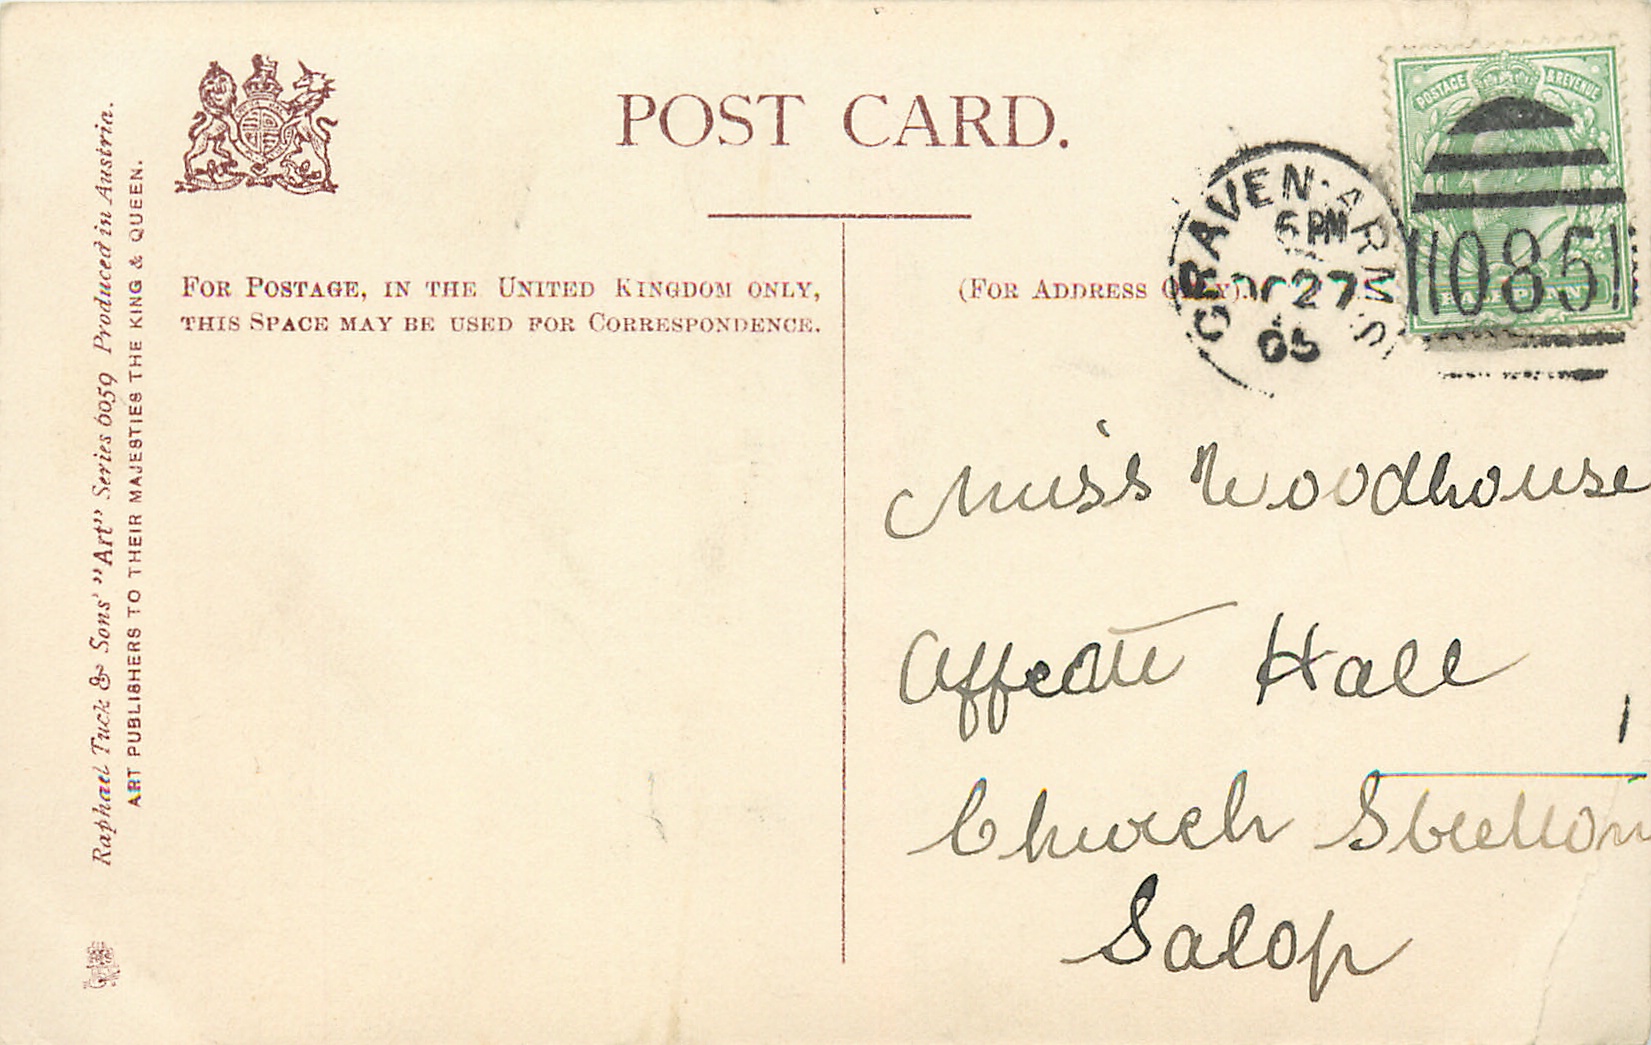 POST CARD.
FOR POSTAGE, IN THE UNITED KINGDOM ONLY,
THIS SPACE MAY BE USED FOR CORRESPONDENCE.
(FOR ADDRESS ONLY).
Raphael Tuck & Sons' "Art" Series 6059 Produced in Austria.
ART PUBLISHERS TO THEIR MAJESTIES THE KING & QUEEN.
POSTAGE & REVENUE
HALFPENNY
CRAVEN·ARMS
6 PM
OC 27
05
085
Miss Woodhouse
Affcott Hall
Church Stretton
Salop